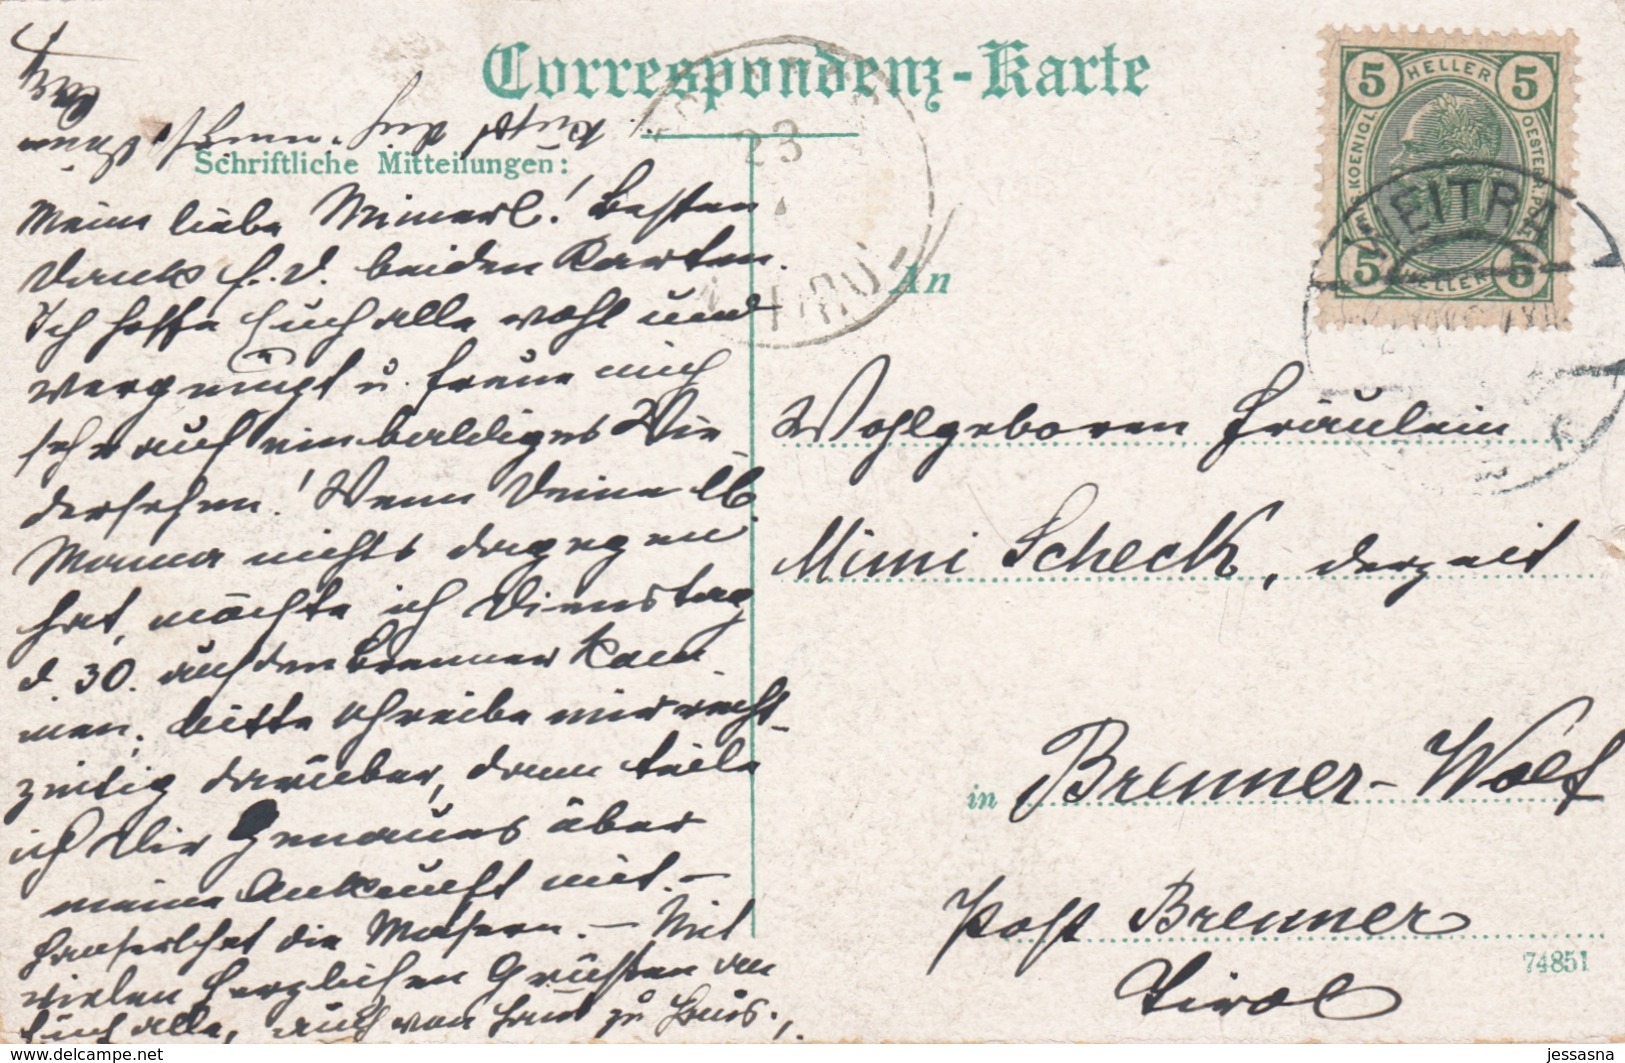 Correspondenz-Karte
Schriftliche Mitteilungen:
Meine liebe Minnerl! Besten
Dank f. d. beiden Karten.
Ich hoffe Euch alle wohl und
vergnügt u. freue mich
sehr auf ein baldiges Wie
dersehen! Wenn Deine lb.
Mama nichts dagegen
hat, möchte ich Dienstag
d. 30. auf den Brenner kom
men, bitte schreibe mir recht-
zeitig darüber, dann teile
ich Dir Genaues über
meine Ankunft mit. –
die Masern. – Mit
vielen herzlichen Grüßen an
Euch alle, auch von Haus zu Haus.,
23
An
Wohlgeboren Fräulein
Mimi Scheck, derzeit
in Brenner-Wolf
Post Brenner
Tirol
74851
5 HELLER 5
5 HELLER 5
jessasna